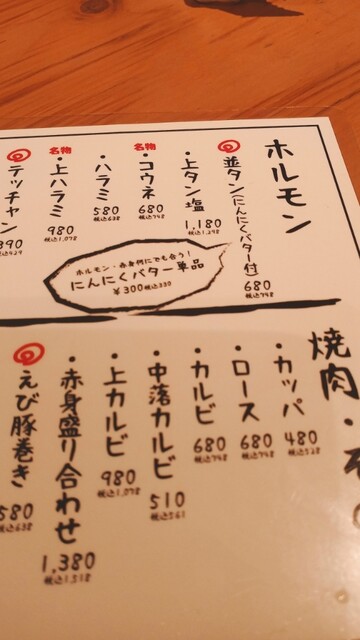 ホルモン
並タンにんにくバター付
680
税込748
・上タン塩
1,180
税込1,298
名物
・コウネ
680
税込748
・ハラミ
580
税込638
名物
・上ハラミ
980
税込1,078
テッチャン
390
税込429
ホルモン・赤身何にでも合う！
にんにくバター単品
¥300税込330
焼肉・
・カッパ
480
税込528
・ロース
680
税込748
・カルビ
680
税込748
・中落カルビ
510
税込561
・上カルビ
980
税込1,078
・赤身盛り合わせ
1,380
税込1,518
えび豚巻き
580
税込638